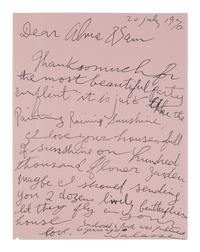 20 July 1970
Dear Alma & Sam
Thank so much for
the most beautiful
it is just like the
Raining Raining Sunshine,
I love your house, full
of sunshine on hundred
thousand flower garden
maybe I should sending
you 2 dozen lively butterflies
let they fly in your
house
love,